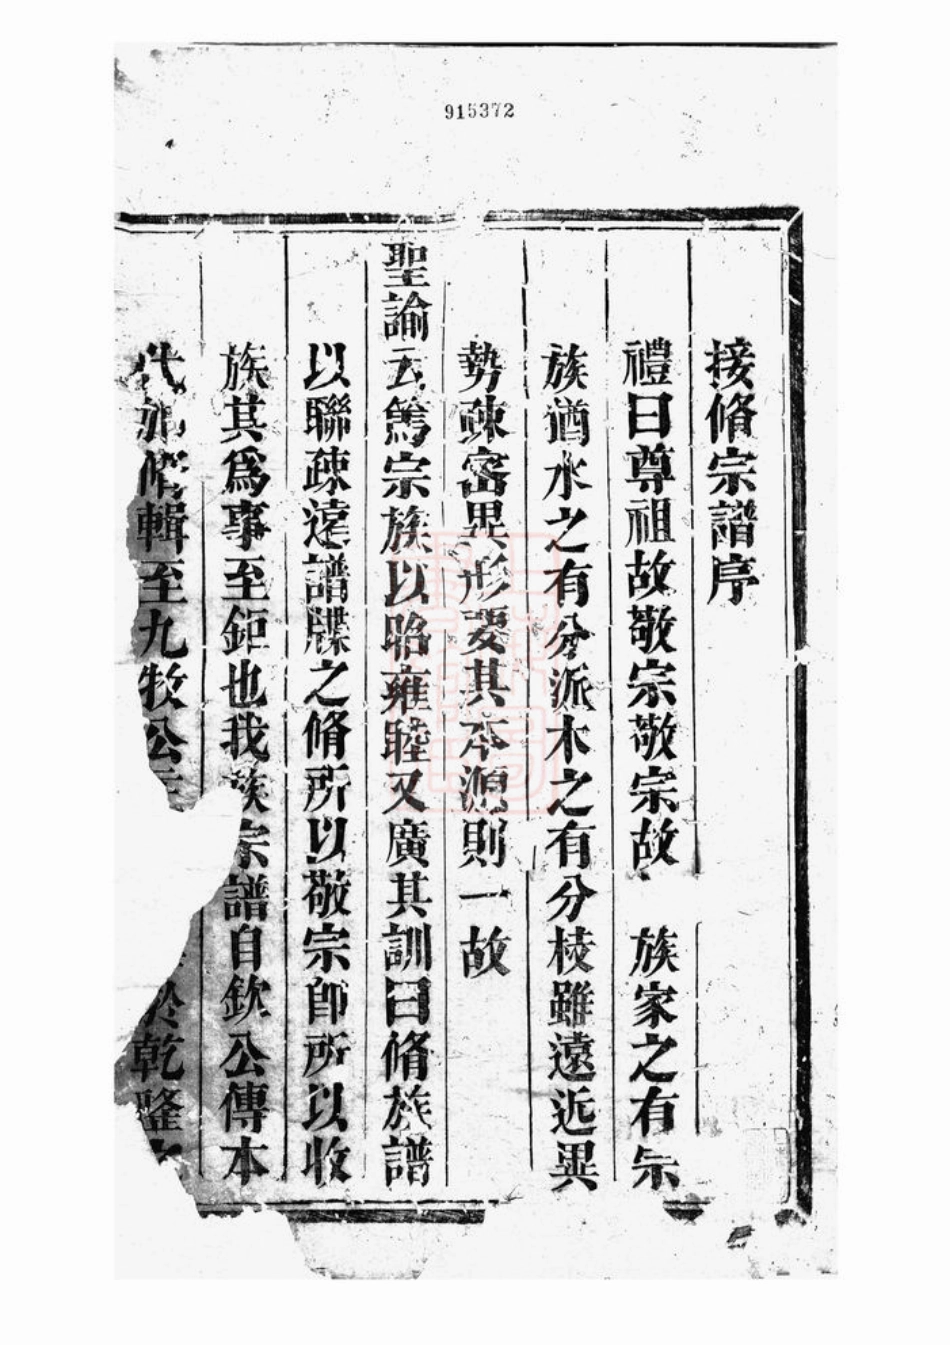 915372
接脩宗譜序
禮曰尊祖故敬宗敬宗故 族家之有宗
族猶水之有分派木之有分枝雖遠近異
勢疎密異形要其本源則一故
聖諭云篤宗族以昭雍睦又廣其訓曰脩族譜
以聯疎遠譜牒之脩所以敬宗即所以收
族其爲事至鉅也我族宗譜自欽公傳本
代 脩輯至九牧公 於乾隆